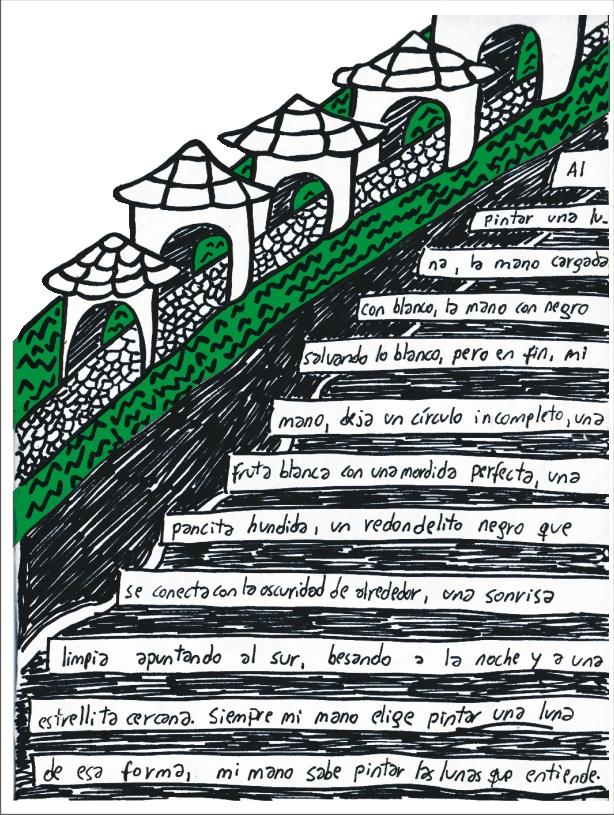 Al
pintar una lu-
na, la mano cargada
con blanco, la mano con negro
salvando lo blanco, pero en fin, mi
mano, deja un círculo incompleto, una
fruta blanca con una mordida perfecta, una
pancita hundida, un redondelito negro que
se conecta con la oscuridad de alrededor, una sonrisa
limpia apuntando al sur, besando a la noche y a una
estrellita cercana. Siempre mi mano elige pintar una luna
de esa forma, mi mano sabe pintar las lunas que entiende.